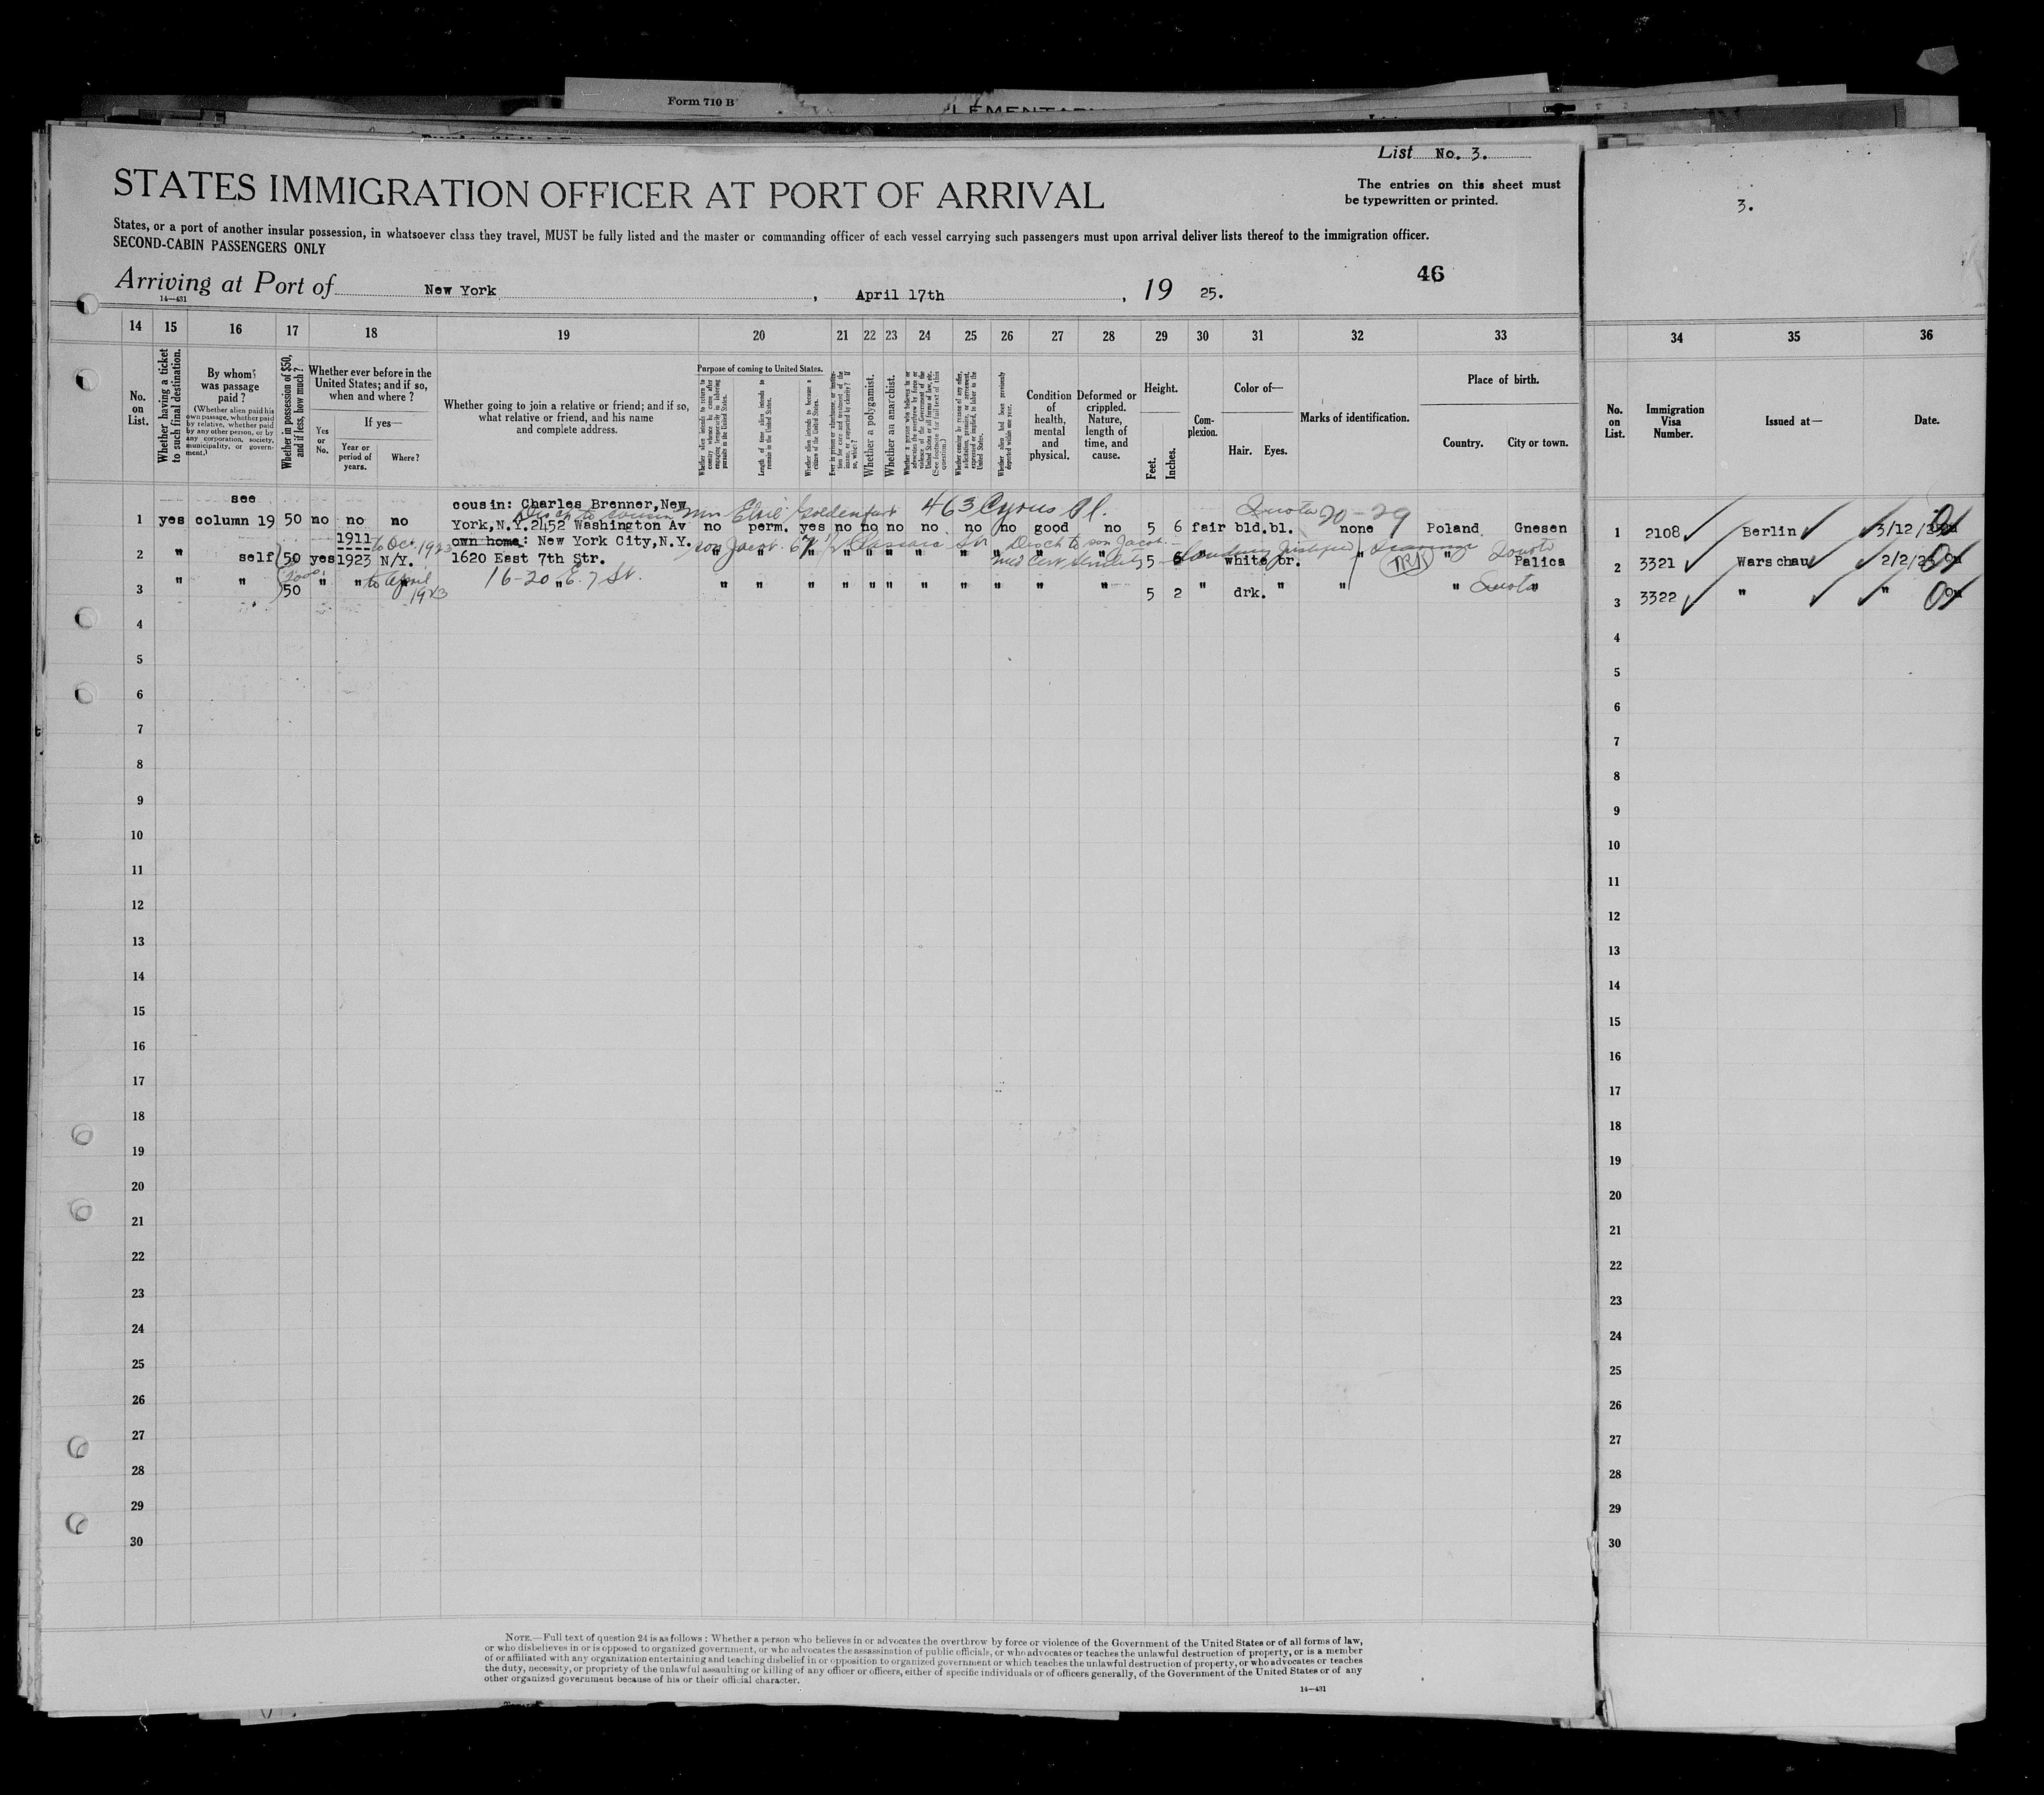 Form 710 B
List No. 3.
STATES IMMIGRATION OFFICER AT PORT OF ARRIVAL
The entries on this sheet must
be typewritten or printed.
3.
States, or a port of another insular possession, in whatsoever class they travel, MUST be fully listed and the master or commanding officer of each vessel carrying such passengers must upon arrival deliver lists thereof to the immigration officer.
SECOND-CABIN PASSENGERS ONLY
46
Arriving at Port of New York, April 17th, 19 25.
14—431
14 15 16 17 18 19 20 21 22 23 24 25 26 27 28 29 30 31 32 33 34 35 36
No. on List.
Whether having a ticket to such final destination.
By whom was passage paid?
(Whether alien paid his own passage, whether paid by relative, whether paid by any other person, or by any corporation, society, municipality, or government.)
Whether in possession of $50, and if less, how much?
Whether ever before in the United States; and if so, when and where?
Yes or No.
If yes—
Year or period of years.
Where?
Whether going to join a relative or friend; and if so, what relative or friend, and his name and complete address.
Purpose of coming to United States.
Length of time alien intends to remain in the United States.
Whether alien intends to become a citizen of the United States.
Whether a polygamist.
Whether an anarchist.
Condition of health, mental and physical.
Deformed or crippled. Nature, length of time, and cause.
Height.
Feet.
Inches.
Complexion.
Color of—
Hair. Eyes.
Marks of identification.
Place of birth.
Country.
City or town.
No. on List.
Immigration Visa Number.
Issued at—
Date.
see
cousin: Charles Brenner, New
463 Cyrus Pl.
20-29
1 yes column 19 50 no no no York, N.Y. 2452 Washington Av no perm. yes no no no no no no good no 5 6 fair bld. bl. none Poland Gnesen 1 2108 Berlin
1911 to Oct. 1923 own home: New York City, N.Y. son Jacob Disch to son Jacob
2 " self 50 yes 1923 N/Y. 1620 East 7th Str. " " " " " " " " " " " 5 6 " white br. " " Palica 2 3321 Warschau
to April 1923
16-20 E. 7 St.
3 " " 50 " " " " " " " " " " " " " " " 5 2 " drk. " " " Quota " 3 3322 " "
4 4
5 5
6 6
7 7
8 8
9 9
10 10
11 11
12 12
13 13
14 14
15 15
16 16
17 17
18 18
19 19
20 20
21 21
22 22
23 23
24 24
25 25
26 26
27 27
28 28
29 29
30 30
NOTE.—Full text of question 24 is as follows: Whether a person who believes in or advocates the overthrow by force or violence of the Government of the United States or of all forms of law,
or who disbelieves in or is opposed to organized government, or who advocates the assassination of public officials, or who advocates or teaches the unlawful destruction of property, or is a member
of or affiliated with any organization entertaining and teaching disbelief in or opposition to organized government or which teaches the unlawful destruction of property, or who advocates or teaches
the duty, necessity, or propriety of the unlawful assaulting or killing of any officer or officers, either of specific individuals or of officers generally, of the Government of the United States or of any
other organized government because of his or their official character.
14—431